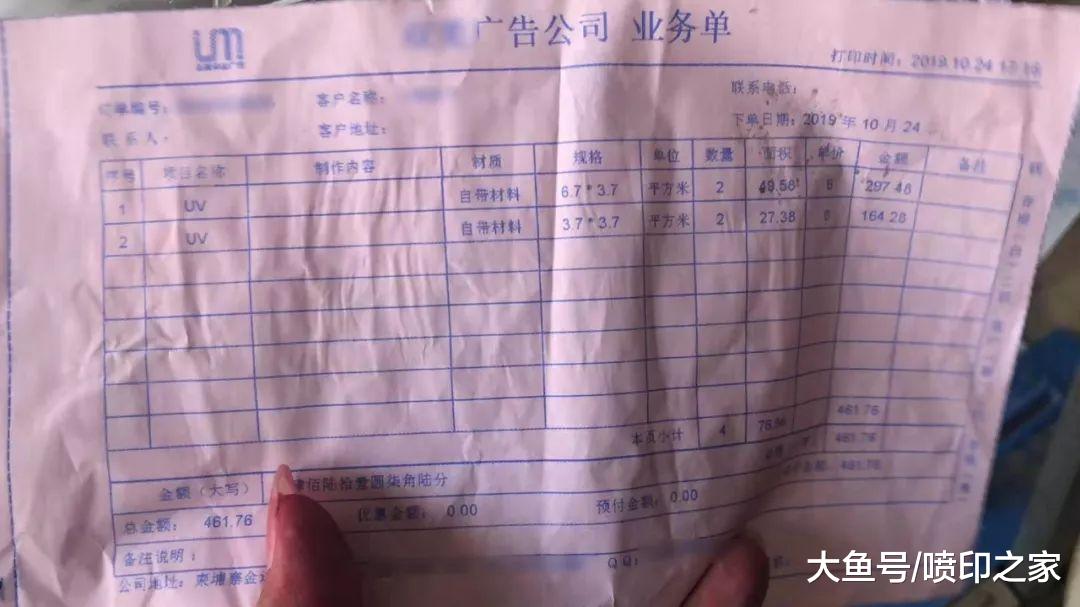 广告公司 业务单
打印时间：2019.10.24
订单编号： 客户名称： 联系电话：
联系人： 客户地址： 下单日期：2019 年 10 月 24
序号 项目名称 制作内容 材质 规格 单位 数量 面积 单价 金额 备注
1 UV 自带材料 6.7*3.7 平方米 2 49.58 6 297.48
2 UV 自带材料 3.7*3.7 平方米 2 27.38 6 164.28
461.76
本页小计 4 76.96 461.76
461.76
金额（大写） 佰陆拾壹圆柒角陆分
总金额： 461.76 优惠金额： 0.00 预付金额： 0.00
备注说明： QQ：
公司地址：
大鱼号/喷印之家